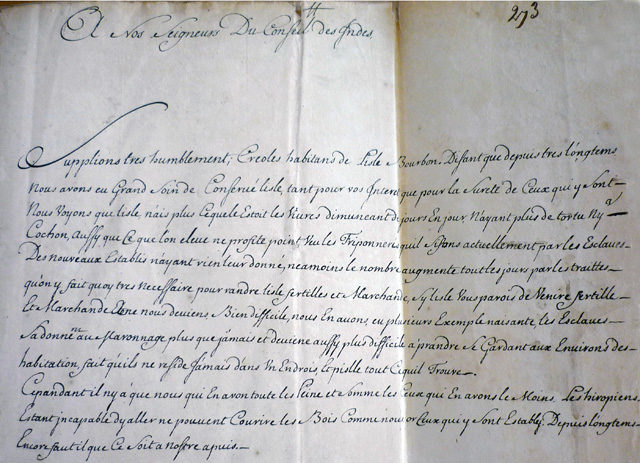 273
A Nos Seigneurs Du Conseil des Indes
Supplions tres humblement; Creoles habitans de Lisle Bourbon. Disant que depuis tres longtems
Nous avons eu Grand Soin de Conservé lisle, tant pour vos Interé que pour la Sureté de Ceux qui y Sont
Nous Voyons que lisle nais plus Ceque le Estoit les Vivres dimineant de jours En jour Nayant plus de tortu Ny a
Cochon, Aussy que Ce que lon eleve ne profite point Veu les Friponneris quil Se fons actuellement par les Esclaves
Des nouveaux Establis nayant rien leur donné, neamoins le nombre augmente tout les jours par les traittes
quon y fait quoy tres Necessaire pour randre lisle fertilles et Marchande, Sy lisle Vous parois de Venire fertille
Et Marchande Elle nous deviens, Bien difficile, nous En avons, eu plusieurs Exemple naisante, les Esclaves
Sadonne au Maronnage plus que jamais et deviene aussy plus difficile a prandre Se Gardant aux Environs des
habitation, fait quils ne reside Jamais dans Un Endrois, Et pille tout Cequil Trouve
Cepandant il ny a que nous qui En avon toute les Peine et Somme les Ceux qui En avons le Moins, Les hiropiens
Estant incapable dy aller ne pouvent Courire les Bois Comme nous or Ceux qui y Sont Establis; Depuis longtems
Encore faut il que Ce Soit a Nostre apuis.